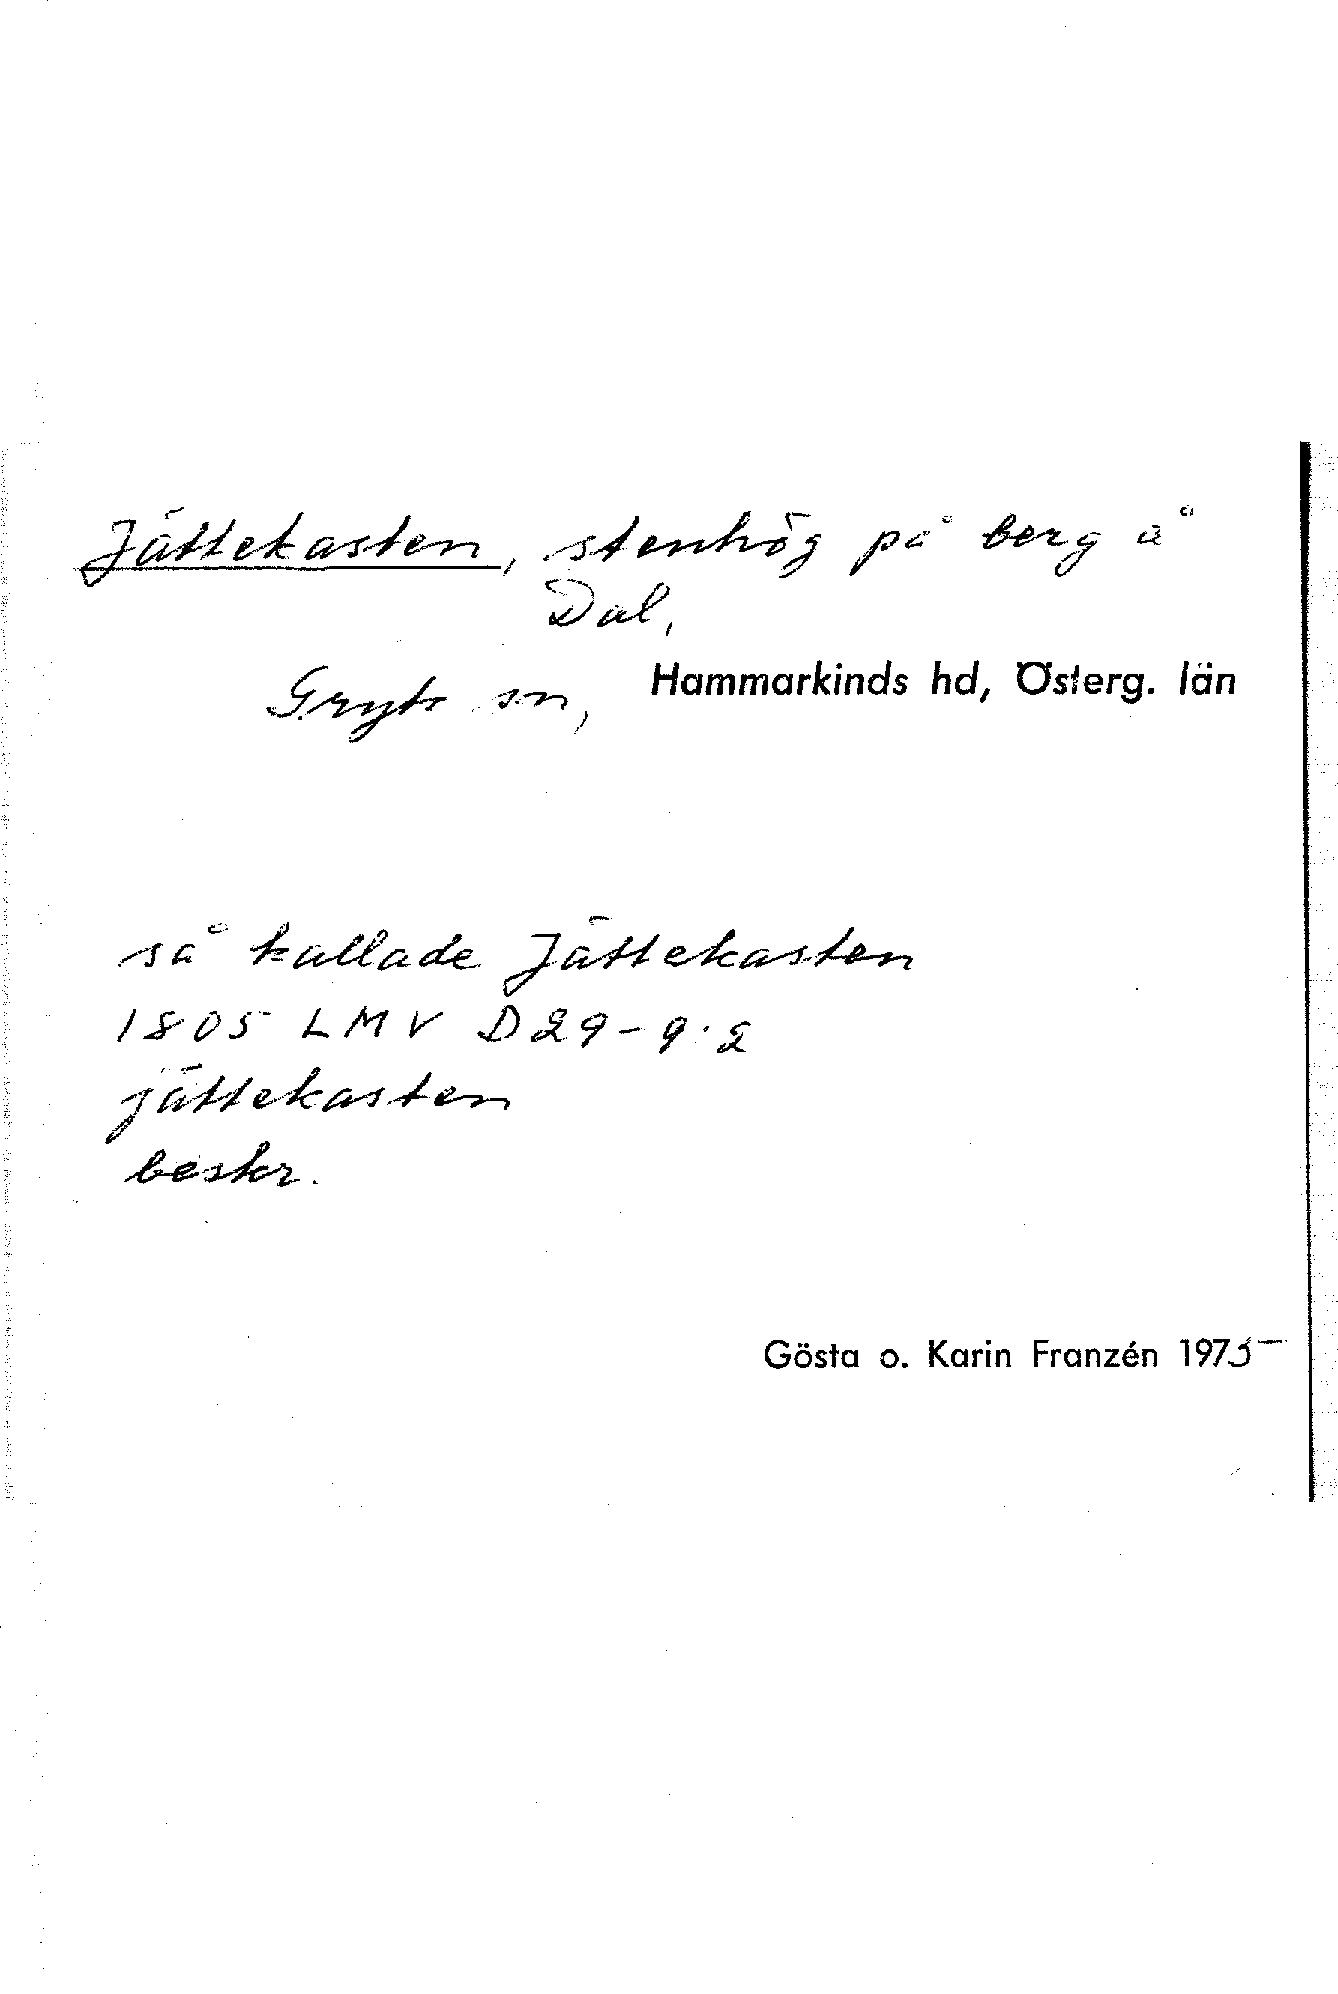 Jättekasten, stenhög på berg å
Dal,
Gryts sn, Hammarkinds hd, Österg. län
så kallade Jättekasten
1805 LMV D29-9:2
jättekasten
beskr.
Gösta o. Karin Franzén 1975